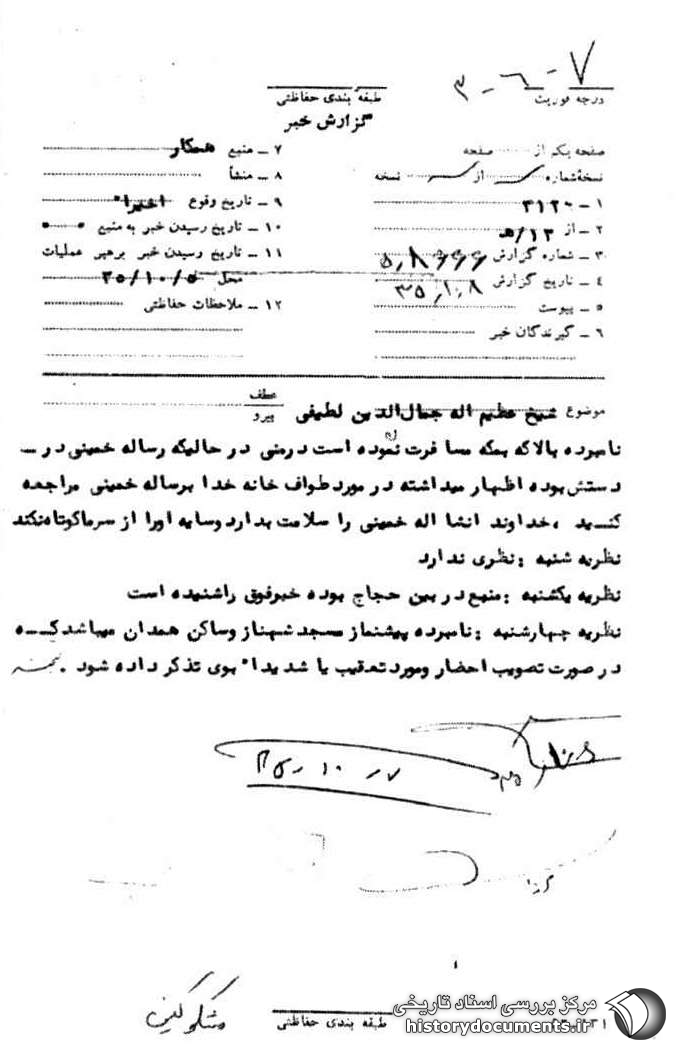 ۳-۶-۷
درجه فوریت
طبقه بندی حفاظتی
گزارش خبر
صفحه یکم از صفحه
نسخه شماره از نسخه
۱ - ۳۱۲۰
۲ - از ۱۲/هـ
۳ - شماره گزارش
۴ - تاریخ گزارش ۳۵٫۱۰٫۸
۵ - پیوست
۶ - گیرندگان خبر
۷ - منبع همکار
۸ - منشأ
۹ - تاریخ وقوع اخیراً
۱۰ - تاریخ رسیدن خبر به منبع
۱۱ - تاریخ رسیدن خبر برهبر عملیات
محل ۳۵/۱۰/۵
۱۲ - ملاحظات حفاظتی
موضوع شیخ عظیم اله جمال الدین لطیفی
عطف
پیرو
نامبرده بالا که بمکه مسافرت نموده است در منی در حالیکه رساله خمینی در
دستش بوده اظهار میداشته در مورد طواف خانه خدا برساله خمینی مراجعه
کنید ، خداوند انشا اله خمینی را سلامت بدارد و سایه اورا از سرما کوتاه نکند
نظریه شنبه : نظری ندارد
نظریه یکشنبه : منبع در بین حجاج بوده خبر فوق راشنیده است
نظریه چهارشنبه : نامبرده پیشنماز مسجد شهناز وساکن همدان میباشد که
در صورت تصویب احضار ومورد تعقیب یا شدیداً بوی تذکر داده شود .
۳۵٫۱۰٫۷
مشکوکین
طبقه بندی حفاظتی
مرکز بررسی اسناد تاریخی
historydocuments.ir